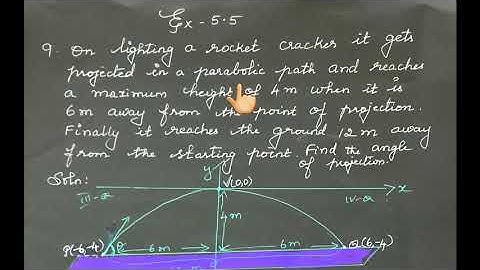 Ex - 5.5
9. On lighting a rocket cracker it gets
projected in a parabolic path and reaches
a maximum height of 4m when it is
6m away from the point of projection.
Finally it reaches the ground 12m away
from the starting point. Find the angle
of projection.
Soln:
y
V(0,0)
x
III-Q
IV-Q
4m
P(-6,-4)
θ
6m
6m
Q(6,-4)